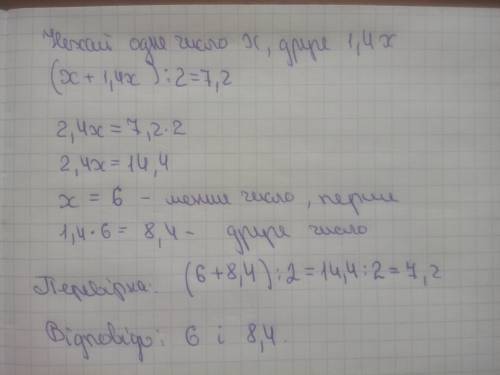 Нехай одне число x, друге 1,4x
(x + 1,4x) : 2 = 7,2
2,4x = 7,2 · 2
2,4x = 14,4
x = 6 - менше число, перше
1,4 · 6 = 8,4 - друге число
Перевірка: (6 + 8,4) : 2 = 14,4 : 2 = 7,2
Відповідь: 6 і 8,4.